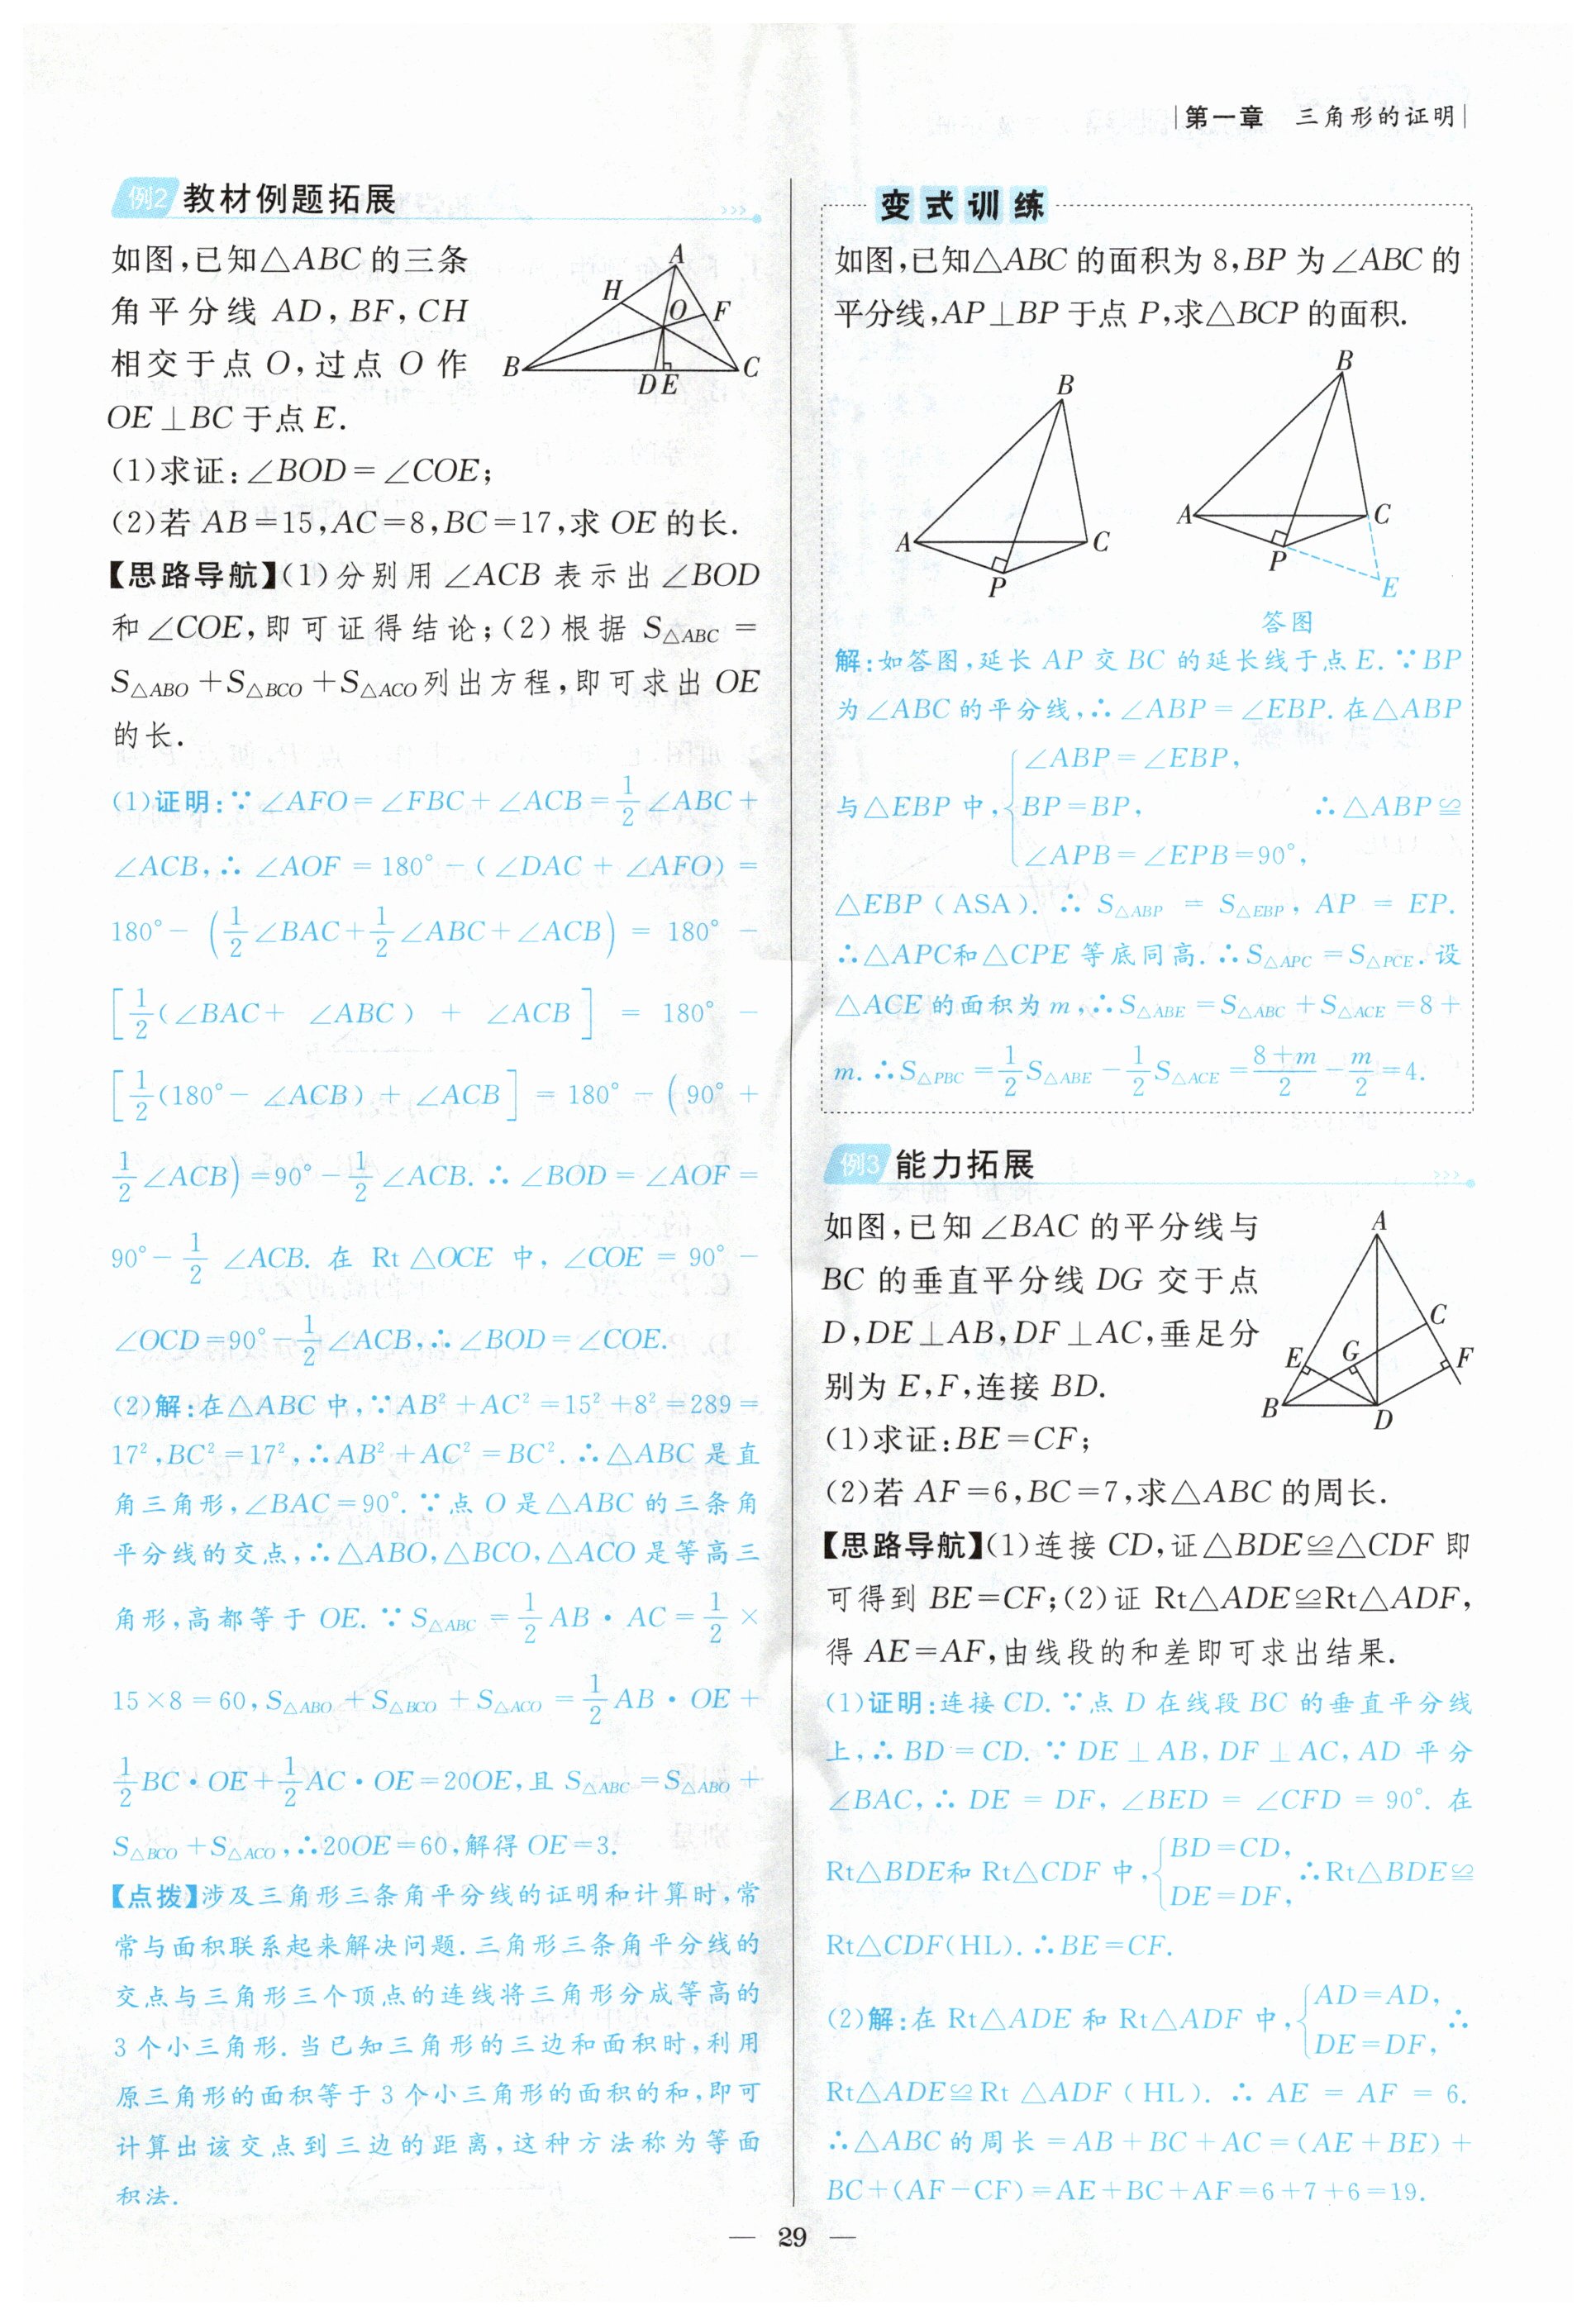 第一章　三角形的证明
例2 教材例题拓展
如图,已知△ABC的三条
角平分线 AD,BF,CH
相交于点 O,过点 O 作
OE⊥BC于点E.
A
H
O
F
B
C
D E
(1)求证:∠BOD=∠COE;
(2)若 AB=15,AC=8,BC=17,求 OE 的长.
【思路导航】(1)分别用∠ACB 表示出∠BOD
和∠COE,即可证得结论;(2)根据 S△ABC =
S△ABO+S△BCO+S△ACO列出方程,即可求出 OE
的长.
(1)证明:∵∠AFO=∠FBC+∠ACB=1/2∠ABC+
∠ACB,∴∠AOF=180°-(∠DAC+∠AFO)=
180°-(1/2∠BAC+1/2∠ABC+∠ACB)=180°-
[1/2(∠BAC+∠ABC)+∠ACB]=180°-
[1/2(180°-∠ACB)+∠ACB]=180°-(90°+
1/2∠ACB)=90°-1/2∠ACB.∴∠BOD=∠AOF=
90°-1/2∠ACB.在 Rt△OCE 中,∠COE=90°-
∠OCD=90°-1/2∠ACB,∴∠BOD=∠COE.
(2)解:在△ABC中,∵AB²+AC²=15²+8²=289=
17²,BC²=17²,∴AB²+AC²=BC².∴△ABC是直
角三角形,∠BAC=90°.∵点O是△ABC的三条角
平分线的交点,∴△ABO,△BCO,△ACO是等高三
角形,高都等于 OE.∵S△ABC=1/2AB·AC=1/2×
15×8=60,S△ABO+S△BCO+S△ACO=1/2AB·OE+
1/2BC·OE+1/2AC·OE=20OE,且S△ABC=S△ABO+
S△BCO+S△ACO,∴20OE=60,解得OE=3.
【点拨】涉及三角形三条角平分线的证明和计算时,常
常与面积联系起来解决问题.三角形三条角平分线的
交点与三角形三个顶点的连线将三角形分成等高的
3个小三角形.当已知三角形的三边和面积时,利用
原三角形的面积等于3个小三角形的面积的和,即可
计算出该交点到三边的距离,这种方法称为等面
积法.
变式训练
如图,已知△ABC的面积为8,BP为∠ABC的
平分线,AP⊥BP于点P,求△BCP的面积.
B
A
C
P
B
A
C
P
E
答图
解:如答图,延长AP交BC的延长线于点E.∵BP
为∠ABC的平分线,∴∠ABP=∠EBP.在△ABP
∠ABP=∠EBP,
与△EBP中,{BP=BP, ∴△ABP≌
∠APB=∠EPB=90°,
△EBP(ASA).∴S△ABP=S△EBP,AP=EP.
∴△APC和△CPE等底同高.∴S△APC=S△PCE.设
△ACE的面积为m,∴S△ABE=S△ABC+S△ACE=8+
m.∴S△PBC=1/2S△ABE-1/2S△ACE=(8+m)/2-m/2=4.
例3 能力拓展
如图,已知∠BAC的平分线与
BC的垂直平分线DG交于点
D,DE⊥AB,DF⊥AC,垂足分
别为E,F,连接BD.
A
C
E
G
F
B
D
(1)求证:BE=CF;
(2)若AF=6,BC=7,求△ABC的周长.
【思路导航】(1)连接CD,证△BDE≌△CDF即
可得到BE=CF;(2)证Rt△ADE≌Rt△ADF,
得AE=AF,由线段的和差即可求出结果.
(1)证明:连接CD.∵点D在线段BC的垂直平分线
上,∴BD=CD.∵DE⊥AB,DF⊥AC,AD平分
∠BAC,∴DE=DF,∠BED=∠CFD=90°.在
Rt△BDE和Rt△CDF中,{BD=CD, DE=DF, ∴Rt△BDE≌
Rt△CDF(HL).∴BE=CF.
(2)解:在Rt△ADE和Rt△ADF中,{AD=AD, DE=DF, ∴
Rt△ADE≌Rt△ADF(HL).∴AE=AF=6.
∴△ABC的周长=AB+BC+AC=(AE+BE)+
BC+(AF-CF)=AE+BC+AF=6+7+6=19.
— 29 —